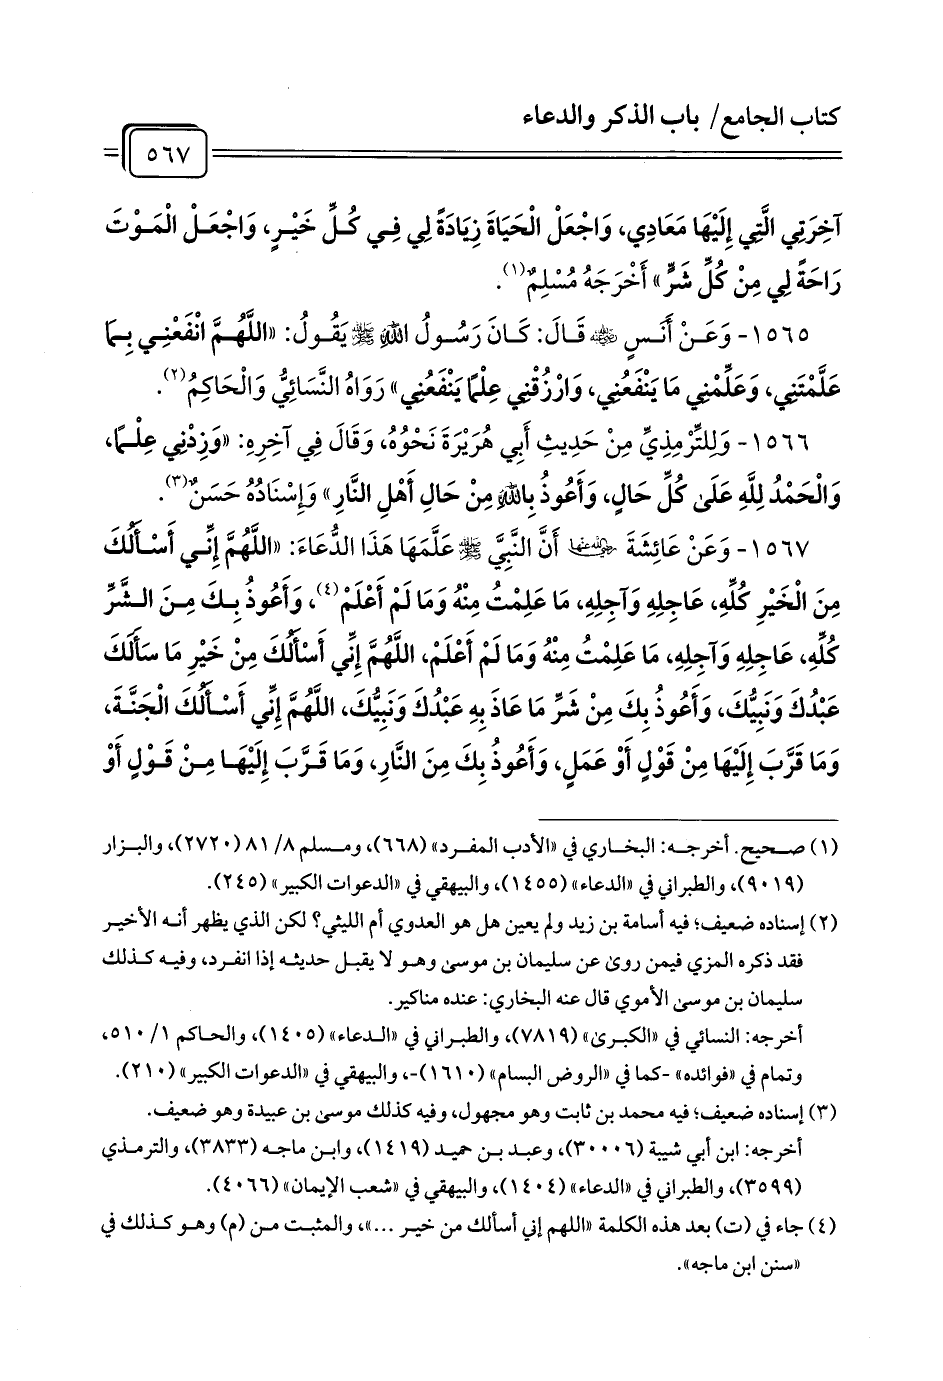 كتاب الجامع/ باب الذكر والدعاء
٥٦٧
آخِرَتِي الَّتِي إِلَيْهَا مَعَادِي، وَاجْعَلْ الْحَيَاةَ زِيَادَةً لِي فِي كُلِّ خَيْرٍ، وَاجْعَلْ الْمَوْتَ
رَاحَةً لِي مِنْ كُلِّ شَرٍّ» أَخْرَجَهُ مُسْلِمٌ(١).
١٥٦٥- وَعَنْ أَنَسٍ ﵁ قَالَ: كَانَ رَسُولُ اللهِ ﷺ يَقُولُ: «اللَّهُمَّ انْفَعْنِي بِمَا
عَلَّمْتَنِي، وَعَلِّمْنِي مَا يَنْفَعُنِي، وَارْزُقْنِي عِلْمًا يَنْفَعُنِي» رَوَاهُ النَّسَائِيُّ وَالْحَاكِمُ(٢).
١٥٦٦- وَلِلتِّرْمِذِيِّ مِنْ حَدِيثِ أَبِي هُرَيْرَةَ نَحْوُهُ، وَقَالَ فِي آخِرِهِ: «وَزِدْنِي عِلْمًا،
وَالْحَمْدُ لِلَّهِ عَلَى كُلِّ حَالٍ، وَأَعُوذُ بِاللهِ مِنْ حَالِ أَهْلِ النَّارِ» وَإِسْنَادُهُ حَسَنٌ(٣).
١٥٦٧- وَعَنْ عَائِشَةَ ﵂ أَنَّ النَّبِيَّ ﷺ عَلَّمَهَا هَذَا الدُّعَاءَ: «اللَّهُمَّ إِنِّي أَسْأَلُكَ
مِنَ الْخَيْرِ كُلِّهِ، عَاجِلِهِ وَآجِلِهِ، مَا عَلِمْتُ مِنْهُ وَمَا لَمْ أَعْلَمْ(٤)، وَأَعُوذُ بِكَ مِنَ الشَّرِّ
كُلِّهِ، عَاجِلِهِ وَآجِلِهِ، مَا عَلِمْتُ مِنْهُ وَمَا لَمْ أَعْلَمْ، اللَّهُمَّ إِنِّي أَسْأَلُكَ مِنْ خَيْرِ مَا سَأَلَكَ
عَبْدُكَ وَنَبِيُّكَ، وَأَعُوذُ بِكَ مِنْ شَرِّ مَا عَاذَ بِهِ عَبْدُكَ وَنَبِيُّكَ، اللَّهُمَّ إِنِّي أَسْأَلُكَ الْجَنَّةَ،
وَمَا قَرَّبَ إِلَيْهَا مِنْ قَوْلٍ أَوْ عَمَلٍ، وَأَعُوذُ بِكَ مِنَ النَّارِ، وَمَا قَرَّبَ إِلَيْهَا مِنْ قَوْلٍ أَوْ
(١) صحيح. أخرجه: البخاري في «الأدب المفرد» (٦٦٨)، ومسلم ٨/ ٨١ (٢٧٢٠)، والبزار
(٩٠١٩)، والطبراني في «الدعاء» (١٤٥٥)، والبيهقي في «الدعوات الكبير» (٢٤٥).
(٢) إسناده ضعيف؛ فيه أسامة بن زيد ولم يعين هل هو العدوي أم الليثي؟ لكن الذي يظهر أنه الأخير
فقد ذكره المزي فيمن روى عن سليمان بن موسى وهو لا يقبل حديثه إذا انفرد، وفيه كذلك
سليمان بن موسى الأموي قال عنه البخاري: عنده مناكير.
أخرجه: النسائي في «الكبرى» (٧٨١٩)، والطبراني في «الدعاء» (١٤٠٥)، والحاكم ١/ ٥١٠،
وتمام في «فوائده» -كما في «الروض البسام» (١٦١٠)-، والبيهقي في «الدعوات الكبير» (٢١٠).
(٣) إسناده ضعيف؛ فيه محمد بن ثابت وهو مجهول، وفيه كذلك موسى بن عبيدة وهو ضعيف.
أخرجه: ابن أبي شيبة (٣٠٠٠٦)، وعبد بن حميد (١٤١٩)، وابن ماجه (٣٨٣٣)، والترمذي
(٣٥٩٩)، والطبراني في «الدعاء» (١٤٠٤)، والبيهقي في «شعب الإيمان» (٤٠٦٦).
(٤) جاء في (ت) بعد هذه الكلمة «اللهم إني أسألك من خير ...»، والمثبت من (م) وهو كذلك في
«سنن ابن ماجه».